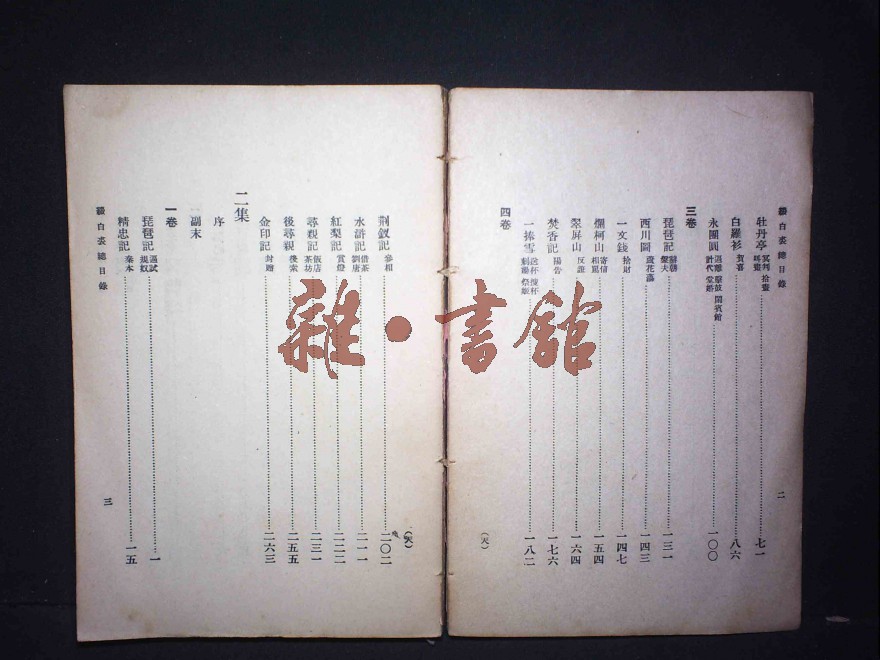 綴白裘總目錄
牡丹亭 冥判 拾畫 叫畫 七一
白羅衫 賀喜 八六
永團圓 逼離 擊鼓 鬧賓館 計代 堂婚 一〇〇
三卷
琵琶記 辭朝 愛夫 一三一
西川圖 蘆花蕩 一四三
一文錢 拾財 一四七
爛柯山 寄信 相罵 一五四
翠屏山 反誑 一六四
焚香記 陽告 一七六
四卷
一捧雪 送杯 搜杯 刺湯 祭姬 一八二
二
(天)
荊釵記 參相 二〇二
水滸記 借茶 劉唐 二一一
紅梨記 賞燈 二二二
尋親記 飯店 茶坊 二三一
後尋親 後索 二五五
金印記 封贈 二六三
二集
序
副末
一卷
琵琶記 逼試 規奴 一
精忠記 秦本 一五
綴白裘總目錄
三
(天)
雜·書館